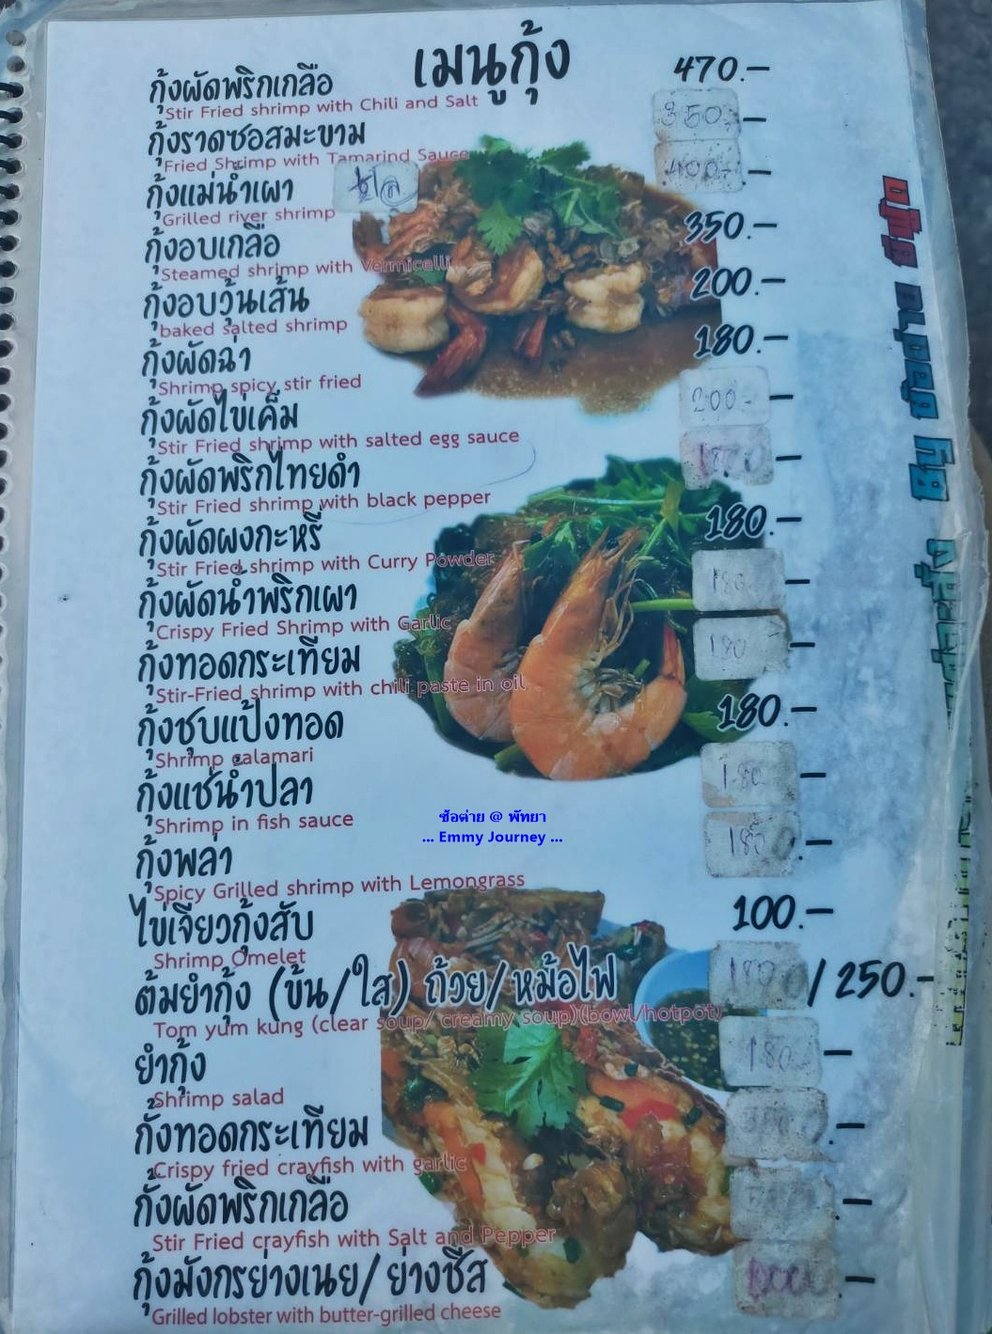 เมนูกุ้ง
กุ้งผัดพริกเกลือ 470.-
Stir Fried shrimp with Chili and Salt
กุ้งราดซอสมะขาม 350.-
Fried Shrimp with Tamarind Sauce
กุ้งแม่น้ำเผา 400.-
Grilled river shrimp
กุ้งอบเกลือ 350.-
Steamed shrimp with Vermicelli
กุ้งอบวุ้นเส้น 200.-
baked salted shrimp
กุ้งผัดฉ่า 180.-
Shrimp spicy stir fried
กุ้งผัดไข่เค็ม 200.-
Stir Fried shrimp with salted egg sauce
กุ้งผัดพริกไทยดำ
Stir Fried shrimp with black pepper
กุ้งผัดผงกะหรี่ 180.-
Stir Fried shrimp with Curry Powder
กุ้งผัดน้ำพริกเผา 180.-
Crispy Fried Shrimp with Garlic
กุ้งทอดกระเทียม 180.-
Stir-Fried shrimp with chili paste in oil
กุ้งชุบแป้งทอด 180.-
Shrimp calamari
กุ้งแช่น้ำปลา 180.-
Shrimp in fish sauce
ซ้อต่าย @ พัทยา
... Emmy Journey ...
กุ้งพล่า 180.-
Spicy Grilled shrimp with Lemongrass
ไข่เจียวกุ้งสับ 100.-
Shrimp Omelet
ต้มยำกุ้ง (ข้น/ใส) ถ้วย/หม้อไฟ /250.-
Tom yum kung (clear soup/ creamy soup)(bowl/hotpot)
ยำกุ้ง 180.-
Shrimp salad
กั้งทอดกระเทียม
Crispy fried crayfish with garlic
กั้งผัดพริกเกลือ
Stir Fried crayfish with Salt and Pepper
กุ้งมังกรย่างเนย/ ย่างชีส
Grilled lobster with butter-grilled cheese
By ซ้อต่าย ซีฟู้ด